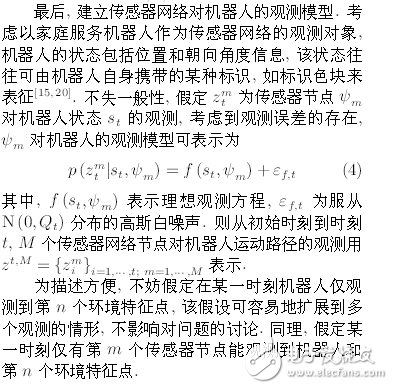 最后, 建立传感器网络对机器人的观测模型. 考
虑以家庭服务机器人作为传感器网络的观测对象,
机器人的状态包括位置和朝向角度信息, 该状态往
往可由机器人自身携带的某种标识, 如标识色块来
表征[15,20]. 不失一般性, 假定 z_t^m 为传感器节点 ψ_m
对机器人状态 s_t 的观测, 考虑到观测误差的存在,
ψ_m 对机器人的观测模型可表示为
p(z_t^m|s_t, ψ_m) = f(s_t, ψ_m) + ε_{f,t} (4)
其中, f(s_t,ψ_m) 表示理想观测方程, ε_{f,t} 为服从
N(0, Q_t) 分布的高斯白噪声. 则从初始时刻到时刻
t, M 个传感器网络节点对机器人运动路径的观测用
z^{t,M} = {z_i^m}_{i=1,⋯,t; m=1,⋯,M} 表示.
为描述方便, 不妨假定在某一时刻机器人仅观
测到第 n 个环境特征点, 该假设可容易地扩展到多
个观测的情形, 不影响对问题的讨论. 同理, 假定某
一时刻仅有第 m 个传感器节点能观测到机器人和
第 n 个环境特征点.
电子发烧友
www.elecfans.com